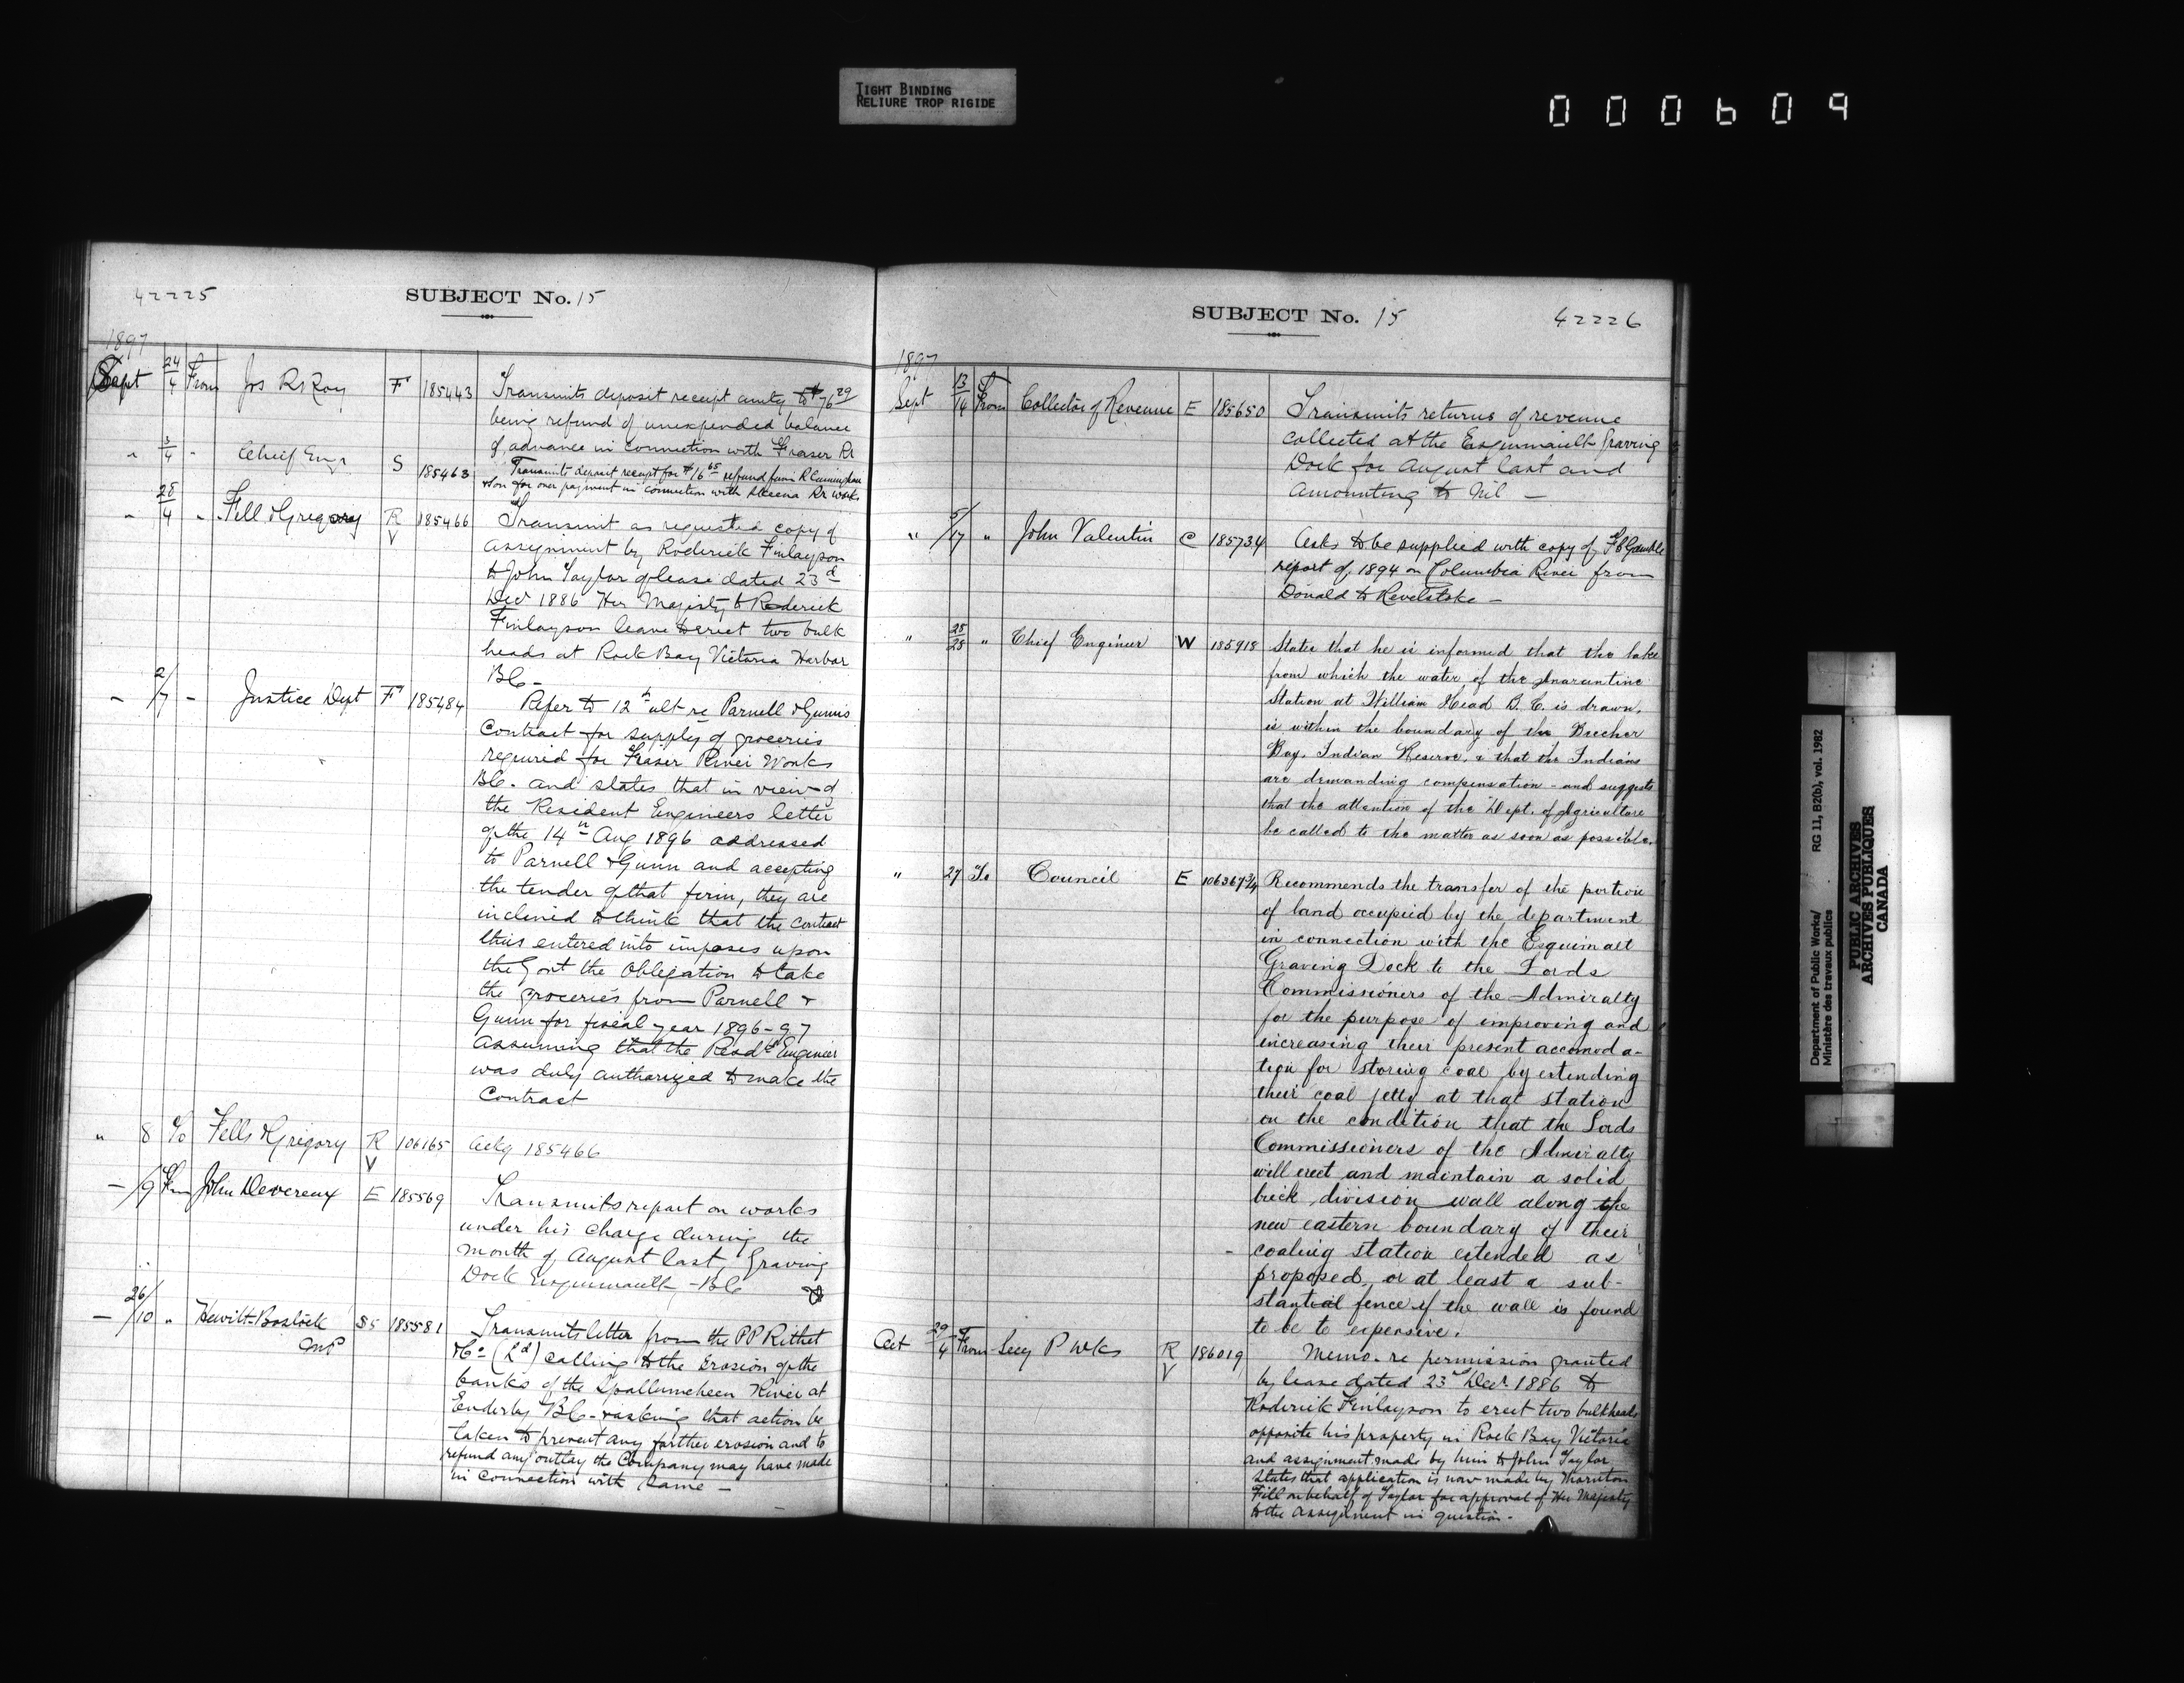 TIGHT BINDING
RELIURE TROP RIGIDE
000609
42225
SUBJECT No. 15
1897
Sept 24/4 From Jos R Roy F 185443 Transmits deposit receipt amtg to $76 29
being refund of unexpended balance
of advance in connection with Fraser Rr
" 3/4 - Chief Engr S 185463 Transmits deposit receipt for $16 65 refund from R Cunningham
& Son for over payment in connection with Skeena Rr works
- 28/4 - Fell & Gregory R V 185466 Transmit as requested copy of
assignment by Roderick Finlayson
to John Taylor of lease dated 23d
Decr 1886 Her Majesty to Roderick
Finlayson leave to erect two bulk
heads at Rock Bay Victoria Harbor
BC -
- 2/7 - Justice Dept F 185484 Refer to 12th ult re Parnell & Gunns
Contract for supply of groceries
required for Fraser River Works
BC. and states that in view of
the Resident Engineers letter
of the 14th Aug 1896 addressed
to Parnell & Gunn and accepting
the tender of that firm, they are
inclined to think that the contract
thus entered into imposes upon
the Govt the obligation to take
the groceries from Parnell &
Gunn for fiscal year 1896-97
Assuming that the Resdt Engineer
was duly authorized to make the
Contract
" 8 To Fells & Gregory R V 106165 Ackg 185466
- /9 Frm John Devereux E 185569 Transmits report on works
under his charge during the
month of August last, Graving
Dock Esquimault - BC
- 26/10 " Hewitt-Bostock MP S5 185581 Transmits letter from the PP Rithet
& Co (Ld) calling to the Erosion of the
banks of the Spallumcheen River at
Enderby BC - & asking that action be
taken to prevent any further erosion and to
refund any outlay the Company may have made
in connection with Same -
SUBJECT No. 15
42226
1897
Sept 13/14 From Collector of Revenue E 185650 Transmits returns of revenue
collected at the Esquimault Graving
Dock for August last and
Amounting to Nil -
" 5/17 " John Valentin C 185734 Asks to be supplied with copy of F C Gamble
report of 1894 on Columbia River from
Donald to Revelstoke -
" 25/28 " Chief Engineer W 185918 States that he is informed that the lake
from which the water of the Quarantine
Station at William Head B. C. is drawn,
is within the boundary of the Beecher
Bay, Indian Reserve, & that the Indians
are demanding compensation - and suggests
that the attention of the Dept. of Agriculture
be called to the matter as soon as possible.
" 27 To Council E 106367 3/4 Recommends the transfer of the portion
of land occupied by the department
in connection with the Esquimalt
Graving Dock to the Lords
Commissioners of the Admiralty
for the purpose of improving and
increasing their present accomoda-
tion for storing coal by extending
their coal jetty at that station
on the condition that the Lords
Commissioners of the Admiralty
will erect and maintain a solid
brick division wall along the
new eastern boundary of their
coaling station extended as
proposed, or at least a sub-
stantial fence if the wall is found
to be to expensive.
Oct 29/4 From Secy P Wks R V 186019 Memo. re permission granted
by lease dated 23rd Decr 1886 to
Roderick Finlayson to erect two bulkheads
opposite his property in Rock Bay Victoria
and assignment made by him to John Taylor
States that application is now made by Thornton
Fell on behalf of Taylor for approval of Her Majesty
to the assignment in question.
Department of Public Works/
Ministère des travaux publics
RG 11, B2(b), vol. 1982
PUBLIC ARCHIVES
ARCHIVES PUBLIQUES
CANADA